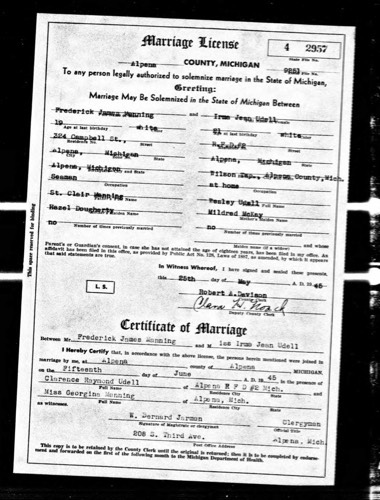 Marriage License
4 2957
State File No.
Alpena COUNTY, MICHIGAN
File No.
To any person legally authorized to solemnize marriage in the State of Michigan,
Greeting:
Marriage May Be Solemnized in the State of Michigan Between
Frederick James Manning and Irma Jean Udell
19 white 21 white
Age at last birthday Age at last birthday
324 Campbell St., R.F.D.#2
Residence No. Street
Alpena, Michigan Alpena, Michigan
City State
Alpena, Michigan Wilson Twp., Alpena County, Mich.
Seaman at home
Occupation Occupation
St. Clair Manning Wesley Udell
Hazel Dougherty Mildred McKay
Mother's Maiden Name
no no
Number of times previously married Number of times previously married
and whose
Maiden name (if a widow)
Parent's or Guardian's consent, in case she has not attained the age of eighteen years, has been filed in my office. An
affidavit has been filed in this office, as provided by Public Act No. 128, Laws of 1887, by which it appears
that said statements are true.
In Witness Whereof, I have signed and sealed these presents,
this 25th day of May A. D. 1945
L. S.
Robert A. Davison
County Clerk
Deputy County Clerk
This space reserved for binding
Certificate of Marriage
Between Mr. Frederick James Manning and M iss Irma Jean Udell
I Hereby Certify that, in accordance with the above license, the persons herein mentioned were joined in
marriage by me, at Alpena county of Alpena MICHIGAN,
on the Fifteenth day of June A. D. 1945 in the presence of
Clarence Raymond Udell of Alpena R F D #2 Mich.
Full Name Residence City State
Miss Georgina Manning of Alpena, Mich.
Full Name Residence City State
as witnesses.
W. Bernard Jarman Clergyman
Signature of magistrate or clergyman Official Title
208 S. Third Ave. Alpena, Mich.
Post Office Address
This copy to be retained by the County Clerk until the original is returned; then it is to be completed by endorsement
and forwarded on the first of the following month to the Michigan Department of Health.